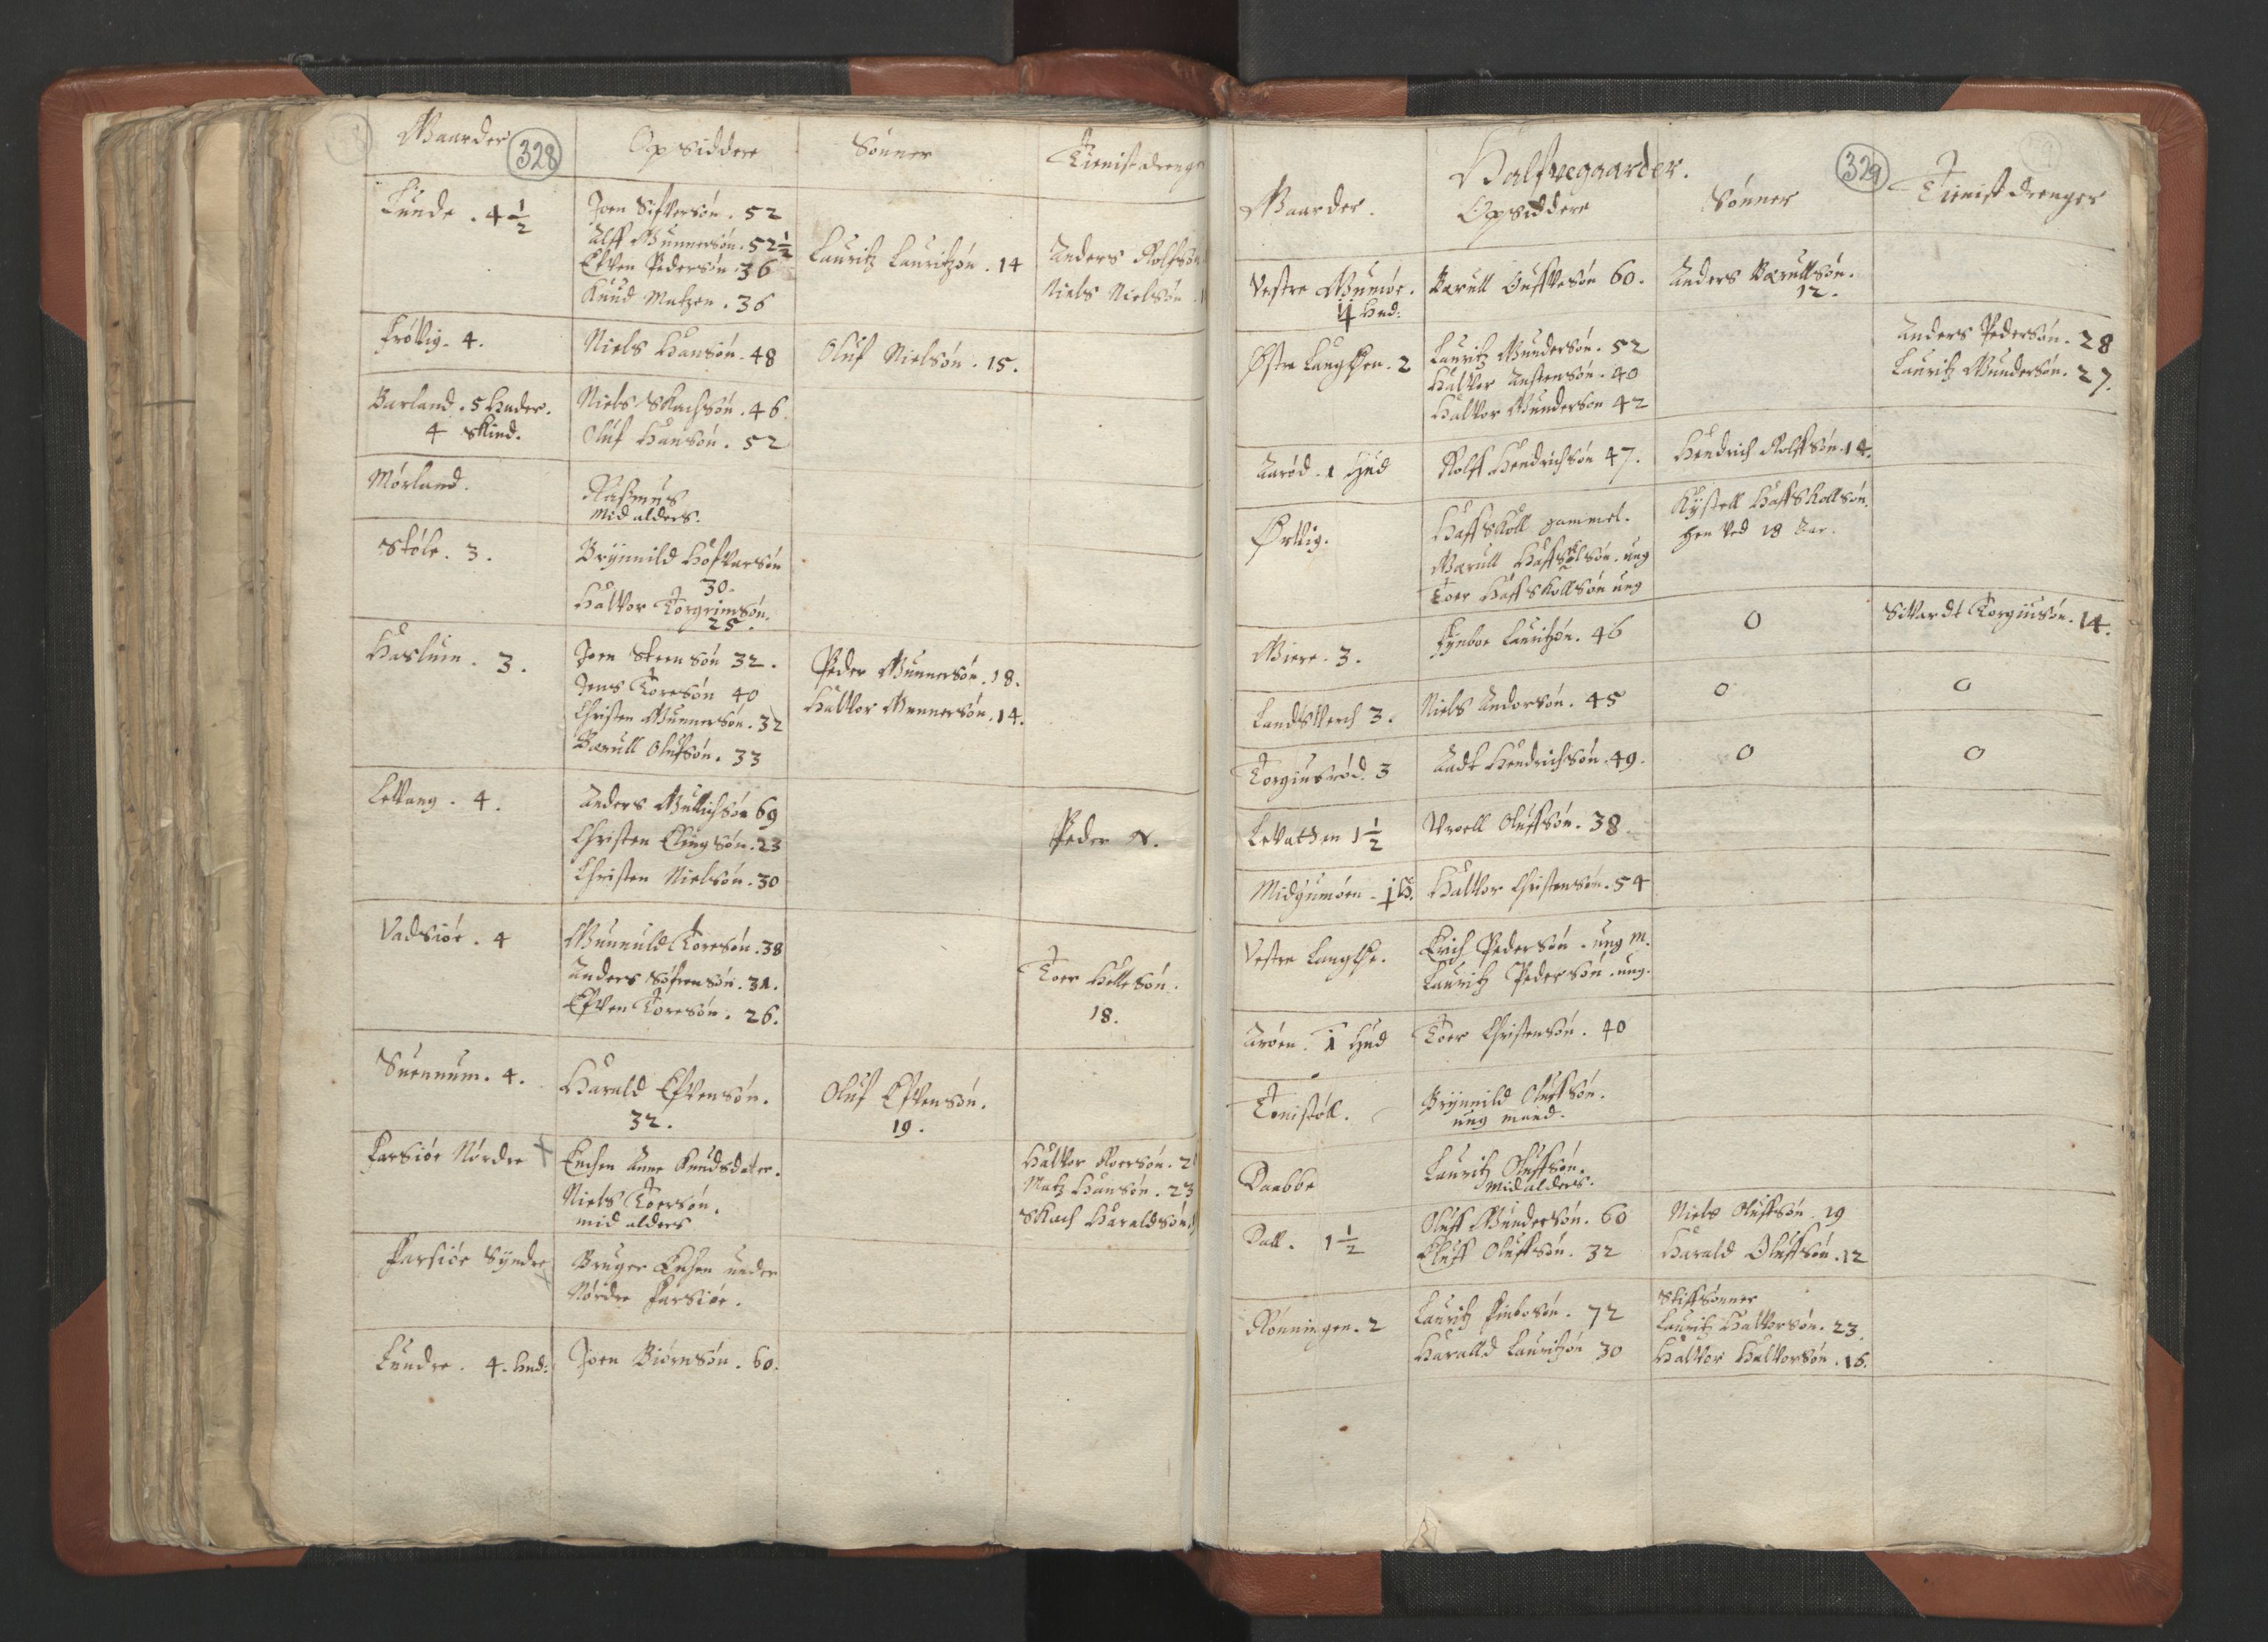 328
Gaarder Opsiddere Sønner Tienistdrenge
Lunde . 4 1/2
Joen Sifversøn . 52
Alff Gunnersøn . 52 1/2
Efven Pedersøn . 36
Knud Matzen . 36
Lauritz Lauritzøn . 14
Anders Rolfsøn
Niels Nielsøn .
Frøvig . 4 .
Niels Hansøn . 48
Oluf Nielsøn . 15 .
Barland . 5 huder .
4 skind .
Niels Skachsøn . 46
Oluf Hansøn . 52
Mørland .
Rasmus
mid alders .
Støle . 3 .
Brynnild Hofvarsøn
30 .
Halvor Torgrimsøn .
25 .
Haslum . 3 .
Joen Steensøn 32 .
Jens Toresøn 40
Christen Gunnersøn . 32
Bærull Olufsøn . 33
Peder Gunnersøn . 18 .
Halvor Gunnersøn . 14 .
Levang . 4 .
Anders Gullichsøn 69
Christen Elingsøn . 23
Christen Nielsøn . 30
Peder N .
Vadsiøe . 4
Gunnuld Toresøn . 38
Anders Søfrensøn . 31 .
Efven Toresøn . 26 .
Toer Hellesøn .
18 .
Suennum . 4 .
Harald Efvensøn .
32 .
Oluf Efvensøn .
19 .
Farsiøe Nørdre
Enchen Anne Knudsdater .
Niels Toersøn .
mid alders
Halvor Roersøn . 2
Matz Hansøn . 23
Skach Haraldsøn
Farsiøe Syndre
Bruger Enchen under
Nørdre Farsiøe .
Lundre . 4 . hud :
Joen Biørnsøn . 60 .
329
Halfvegaarder .
Gaarder . Opsiddere Sønner Tienist drenger
Vestre Gumøe .
4 hud :
Bærull Oufvesøn 60 .
Anders Bærullsøn .
12 .
Østre Langøen . 2
Lauritz Gundersøn . 52
Halvor Austensøn . 40
Halvor Gundersøn 42
Anders Pedersøn . 28
Lauritz Gundersøn . 27 .
Aarød . 1 Hud
Rolff Hendrichsøn 47 .
Hendrich Rolffsøn . 14 .
Ørvig .
Haffskoll gammel .
Værull Haffskolsøn . ung
Toer Haffskollsøn ung
Kystell Haffskollsøn .
hen ved 18 Aar .
Giere . 3 .
Fynboe Lauritzøn . 46
0
Sivardt Torgiusøn . 14 .
Landsverch 3 .
Niels Andorsøn . 45
0 0
Torgiusrød . 3
Aadt Hendrichsøn . 49 .
0 0
Levathen 1 1/2
Vroell Oluffsøn . 38
Midgumøen . 1 h .
Halvor Christensøn . 54
Vestre Langøe .
Erich Pedersøn . ung M .
Lauritz Pedersøn . ung .
Arøen . 1 Hud
Toer Christensøn . 40
Tonistøll .
Brynnild Oluffsøn .
ung mand .
Daabbe
Lauritz Oluffsøn .
mid alders .
Dall . 1 1/2
Oluff Gundersøn . 60
Eluff Oluffsøn . 32
Niels Oluffsøn . 19
Harald Oluffsøn . 12
Rønningen . 2
Lauritz Finbosøn . 72
Haralld Lauritzøn 30
Stiffsønner
Lauritz Halvorsøn . 23 .
Halvor Halvorsøn . 16 .